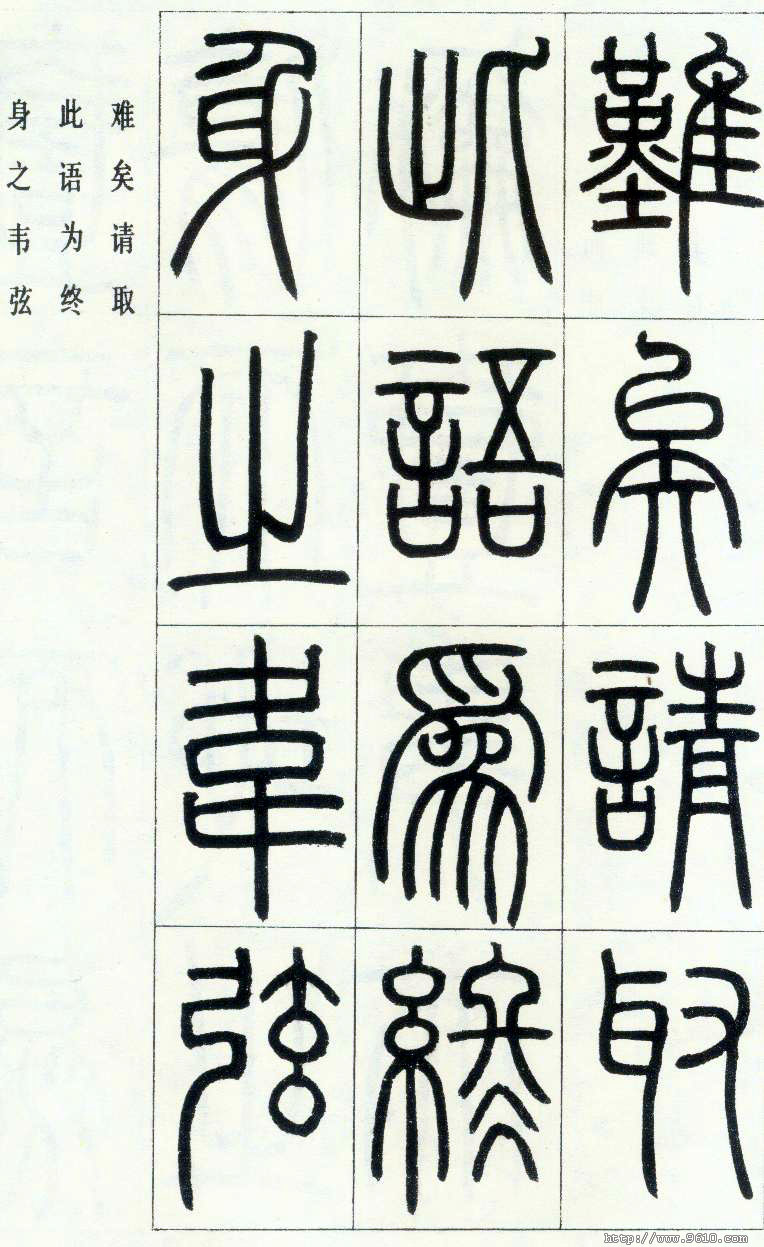 難矣請取
此語為終
身之韋弦
难矣请取
此语为终
身之韦弦
http://www.9610.com